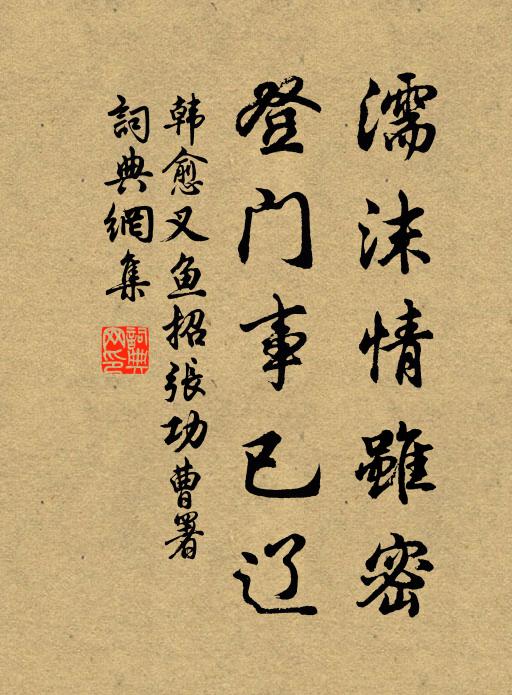 濡沫情雖密
登门事已辽
韩愈叉鱼招張功曹署
詞典網集
詞典网印